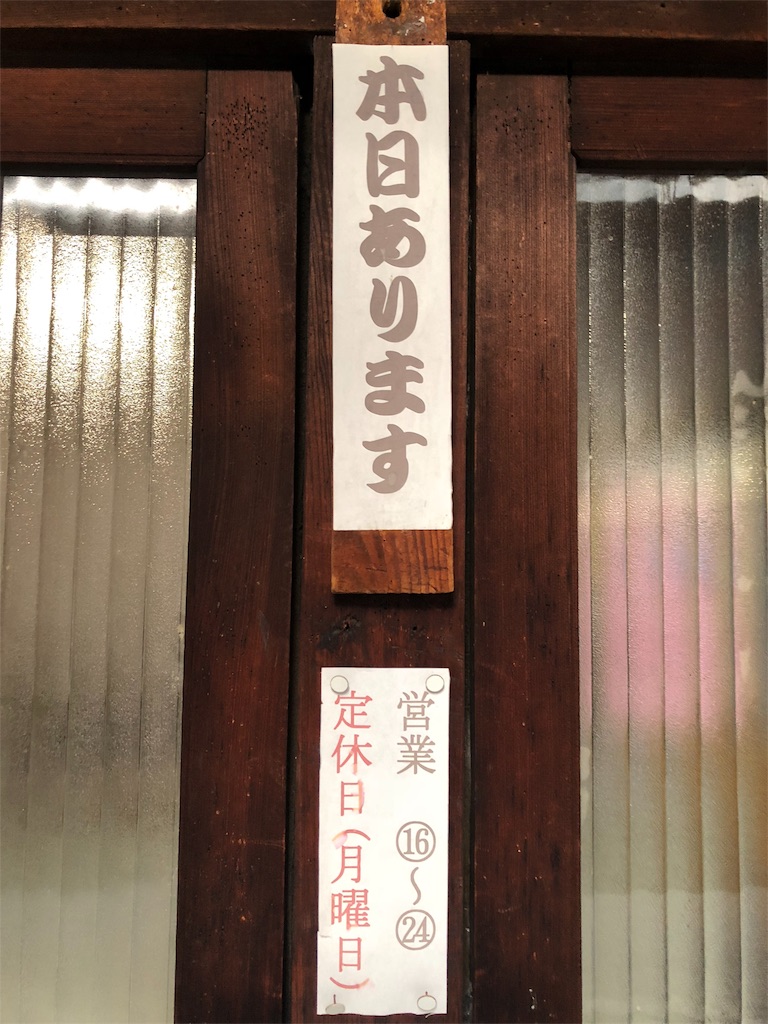 本日あります
営業 ⑯〜㉔
定休日(月曜日)